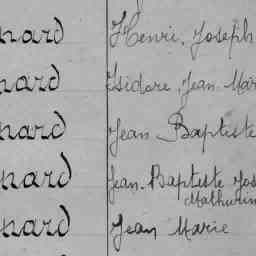 nard Henri Joseph
nard Isidore Jean Mar
nard Jean Baptiste
nard Jean-Baptiste Jos
Mathurin
nard Jean Marie